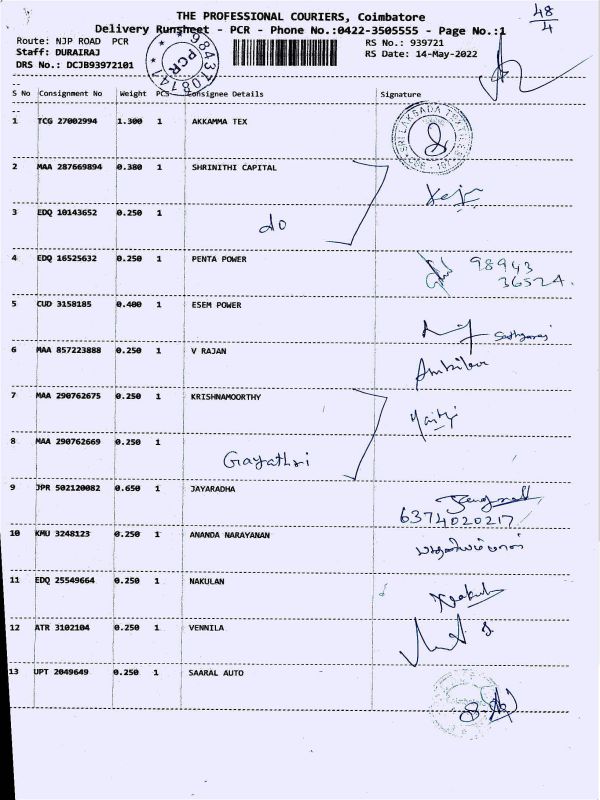 48/4
THE PROFESSIONAL COURIERS, Coimbatore
Delivery Runsheet - PCR - Phone No.:0422-3505555 - Page No.:1
Route: NJP ROAD PCR
RS No.: 939721
Staff: DURAIRAJ
RS Date: 14-May-2022
DRS No.: DCJB93972101
PCR
9843708141
S No Consignment No Weight PCS Consignee Details Signature
1 TCG 27002994 1.300 1 AKKAMMA TEX
2 MAA 287669894 0.380 1 SHRINITHI CAPITAL
3 EDQ 10143652 0.250 1 do
4 EDQ 16525632 0.250 1 PENTA POWER 98943
36524.
5 CUD 3158185 0.400 1 ESEM POWER
6 MAA 857223888 0.250 1 V RAJAN
7 MAA 290762675 0.250 1 KRISHNAMOORTHY
8 MAA 290762669 0.250 1 Gayathri
9 JPR 502120082 0.650 1 JAYARADHA
6374020217
10 KMU 3248123 0.250 1 ANANDA NARAYANAN
11 EDQ 25549664 0.250 1 NAKULAN
12 ATR 3102104 0.250 1 VENNILA
13 UPT 2049649 0.250 1 SAARAL AUTO